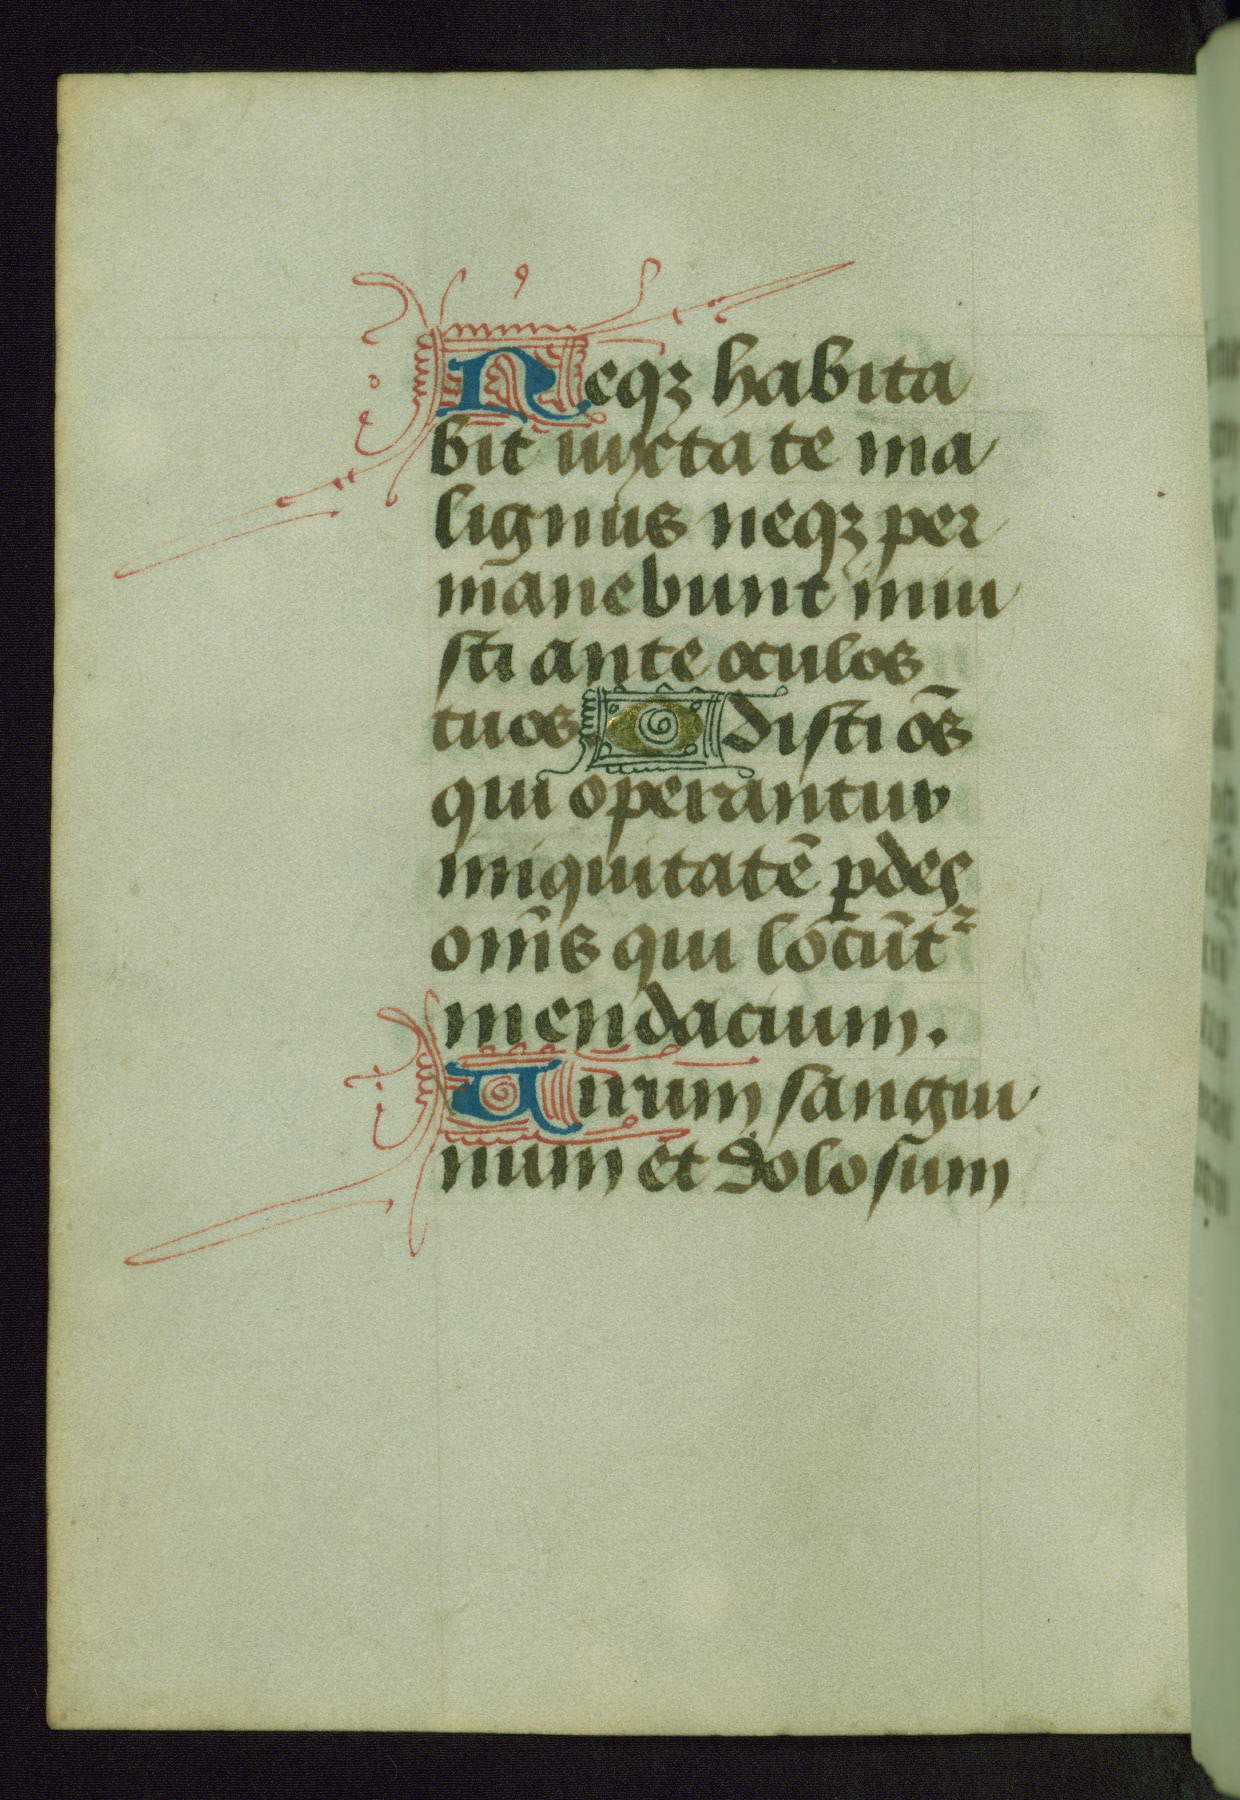 Neqꝫ habita
bit iuxta te ma
lignus neqꝫ per
manebunt iniu
sti ante oculos
tuos Odisti om̄s
qui operantur
iniquitatē ꝑdes
om̄s qui locūt᷑
mendacium.
Uirum sangui
num et dolosum